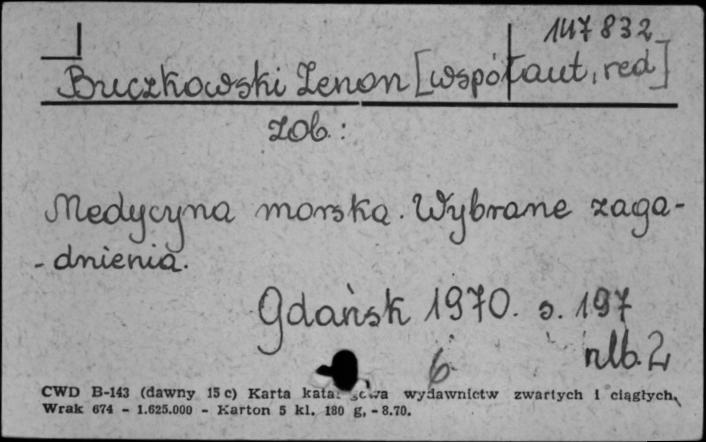 147832
Buczkowski Zenon [współaut, red]
zob.:
Medycyna morska. Wybrane zaga-
-dnienia.
Gdańsk 1970. s. 197
nlb. 2
6
CWD B-143 (dawny 15 c) Karta wydawnictw zwartych i ciągłych.
Wrak 674 - 1.625.000 - Karton 5 kl. 180 g, - 8.70.